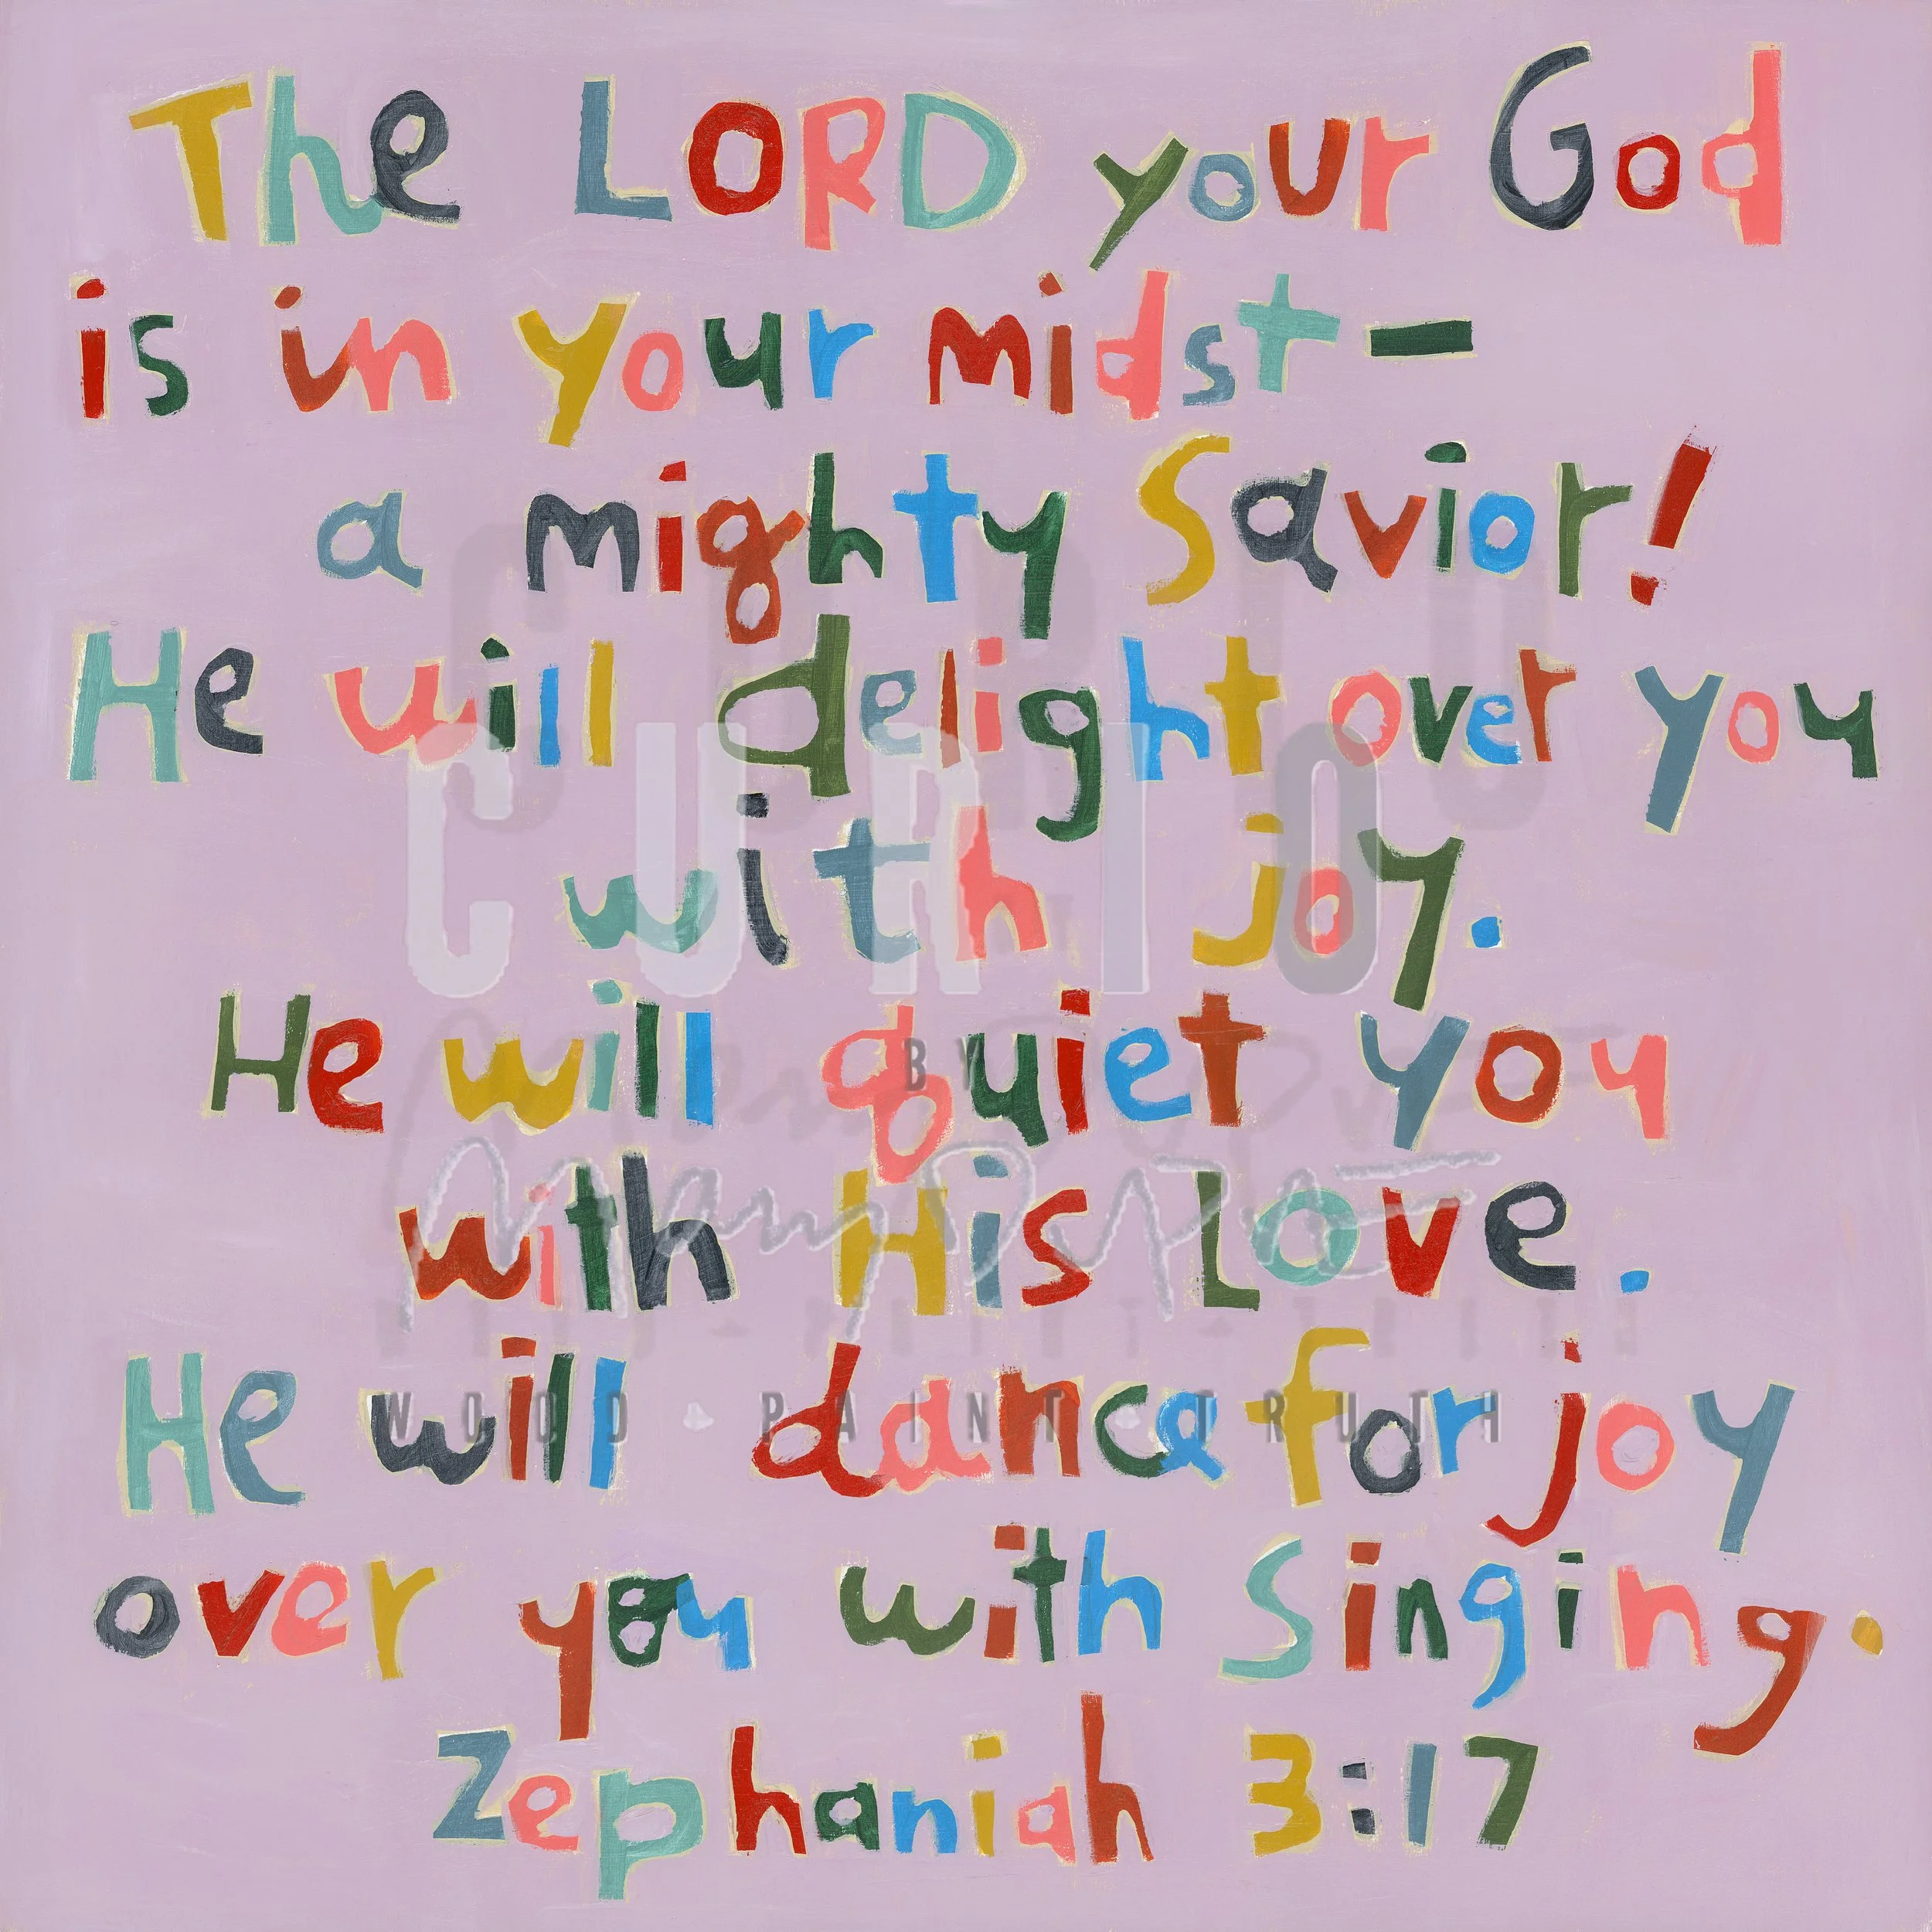 The LORD your God
is in your midst—
a mighty Savior!
He will delight over you
with joy.
He will quiet you
with His Love.
He will dance for joy
over you with Singing.
Zephaniah 3:17
CURIO
BY
WOOD · PAINT · TRUTH